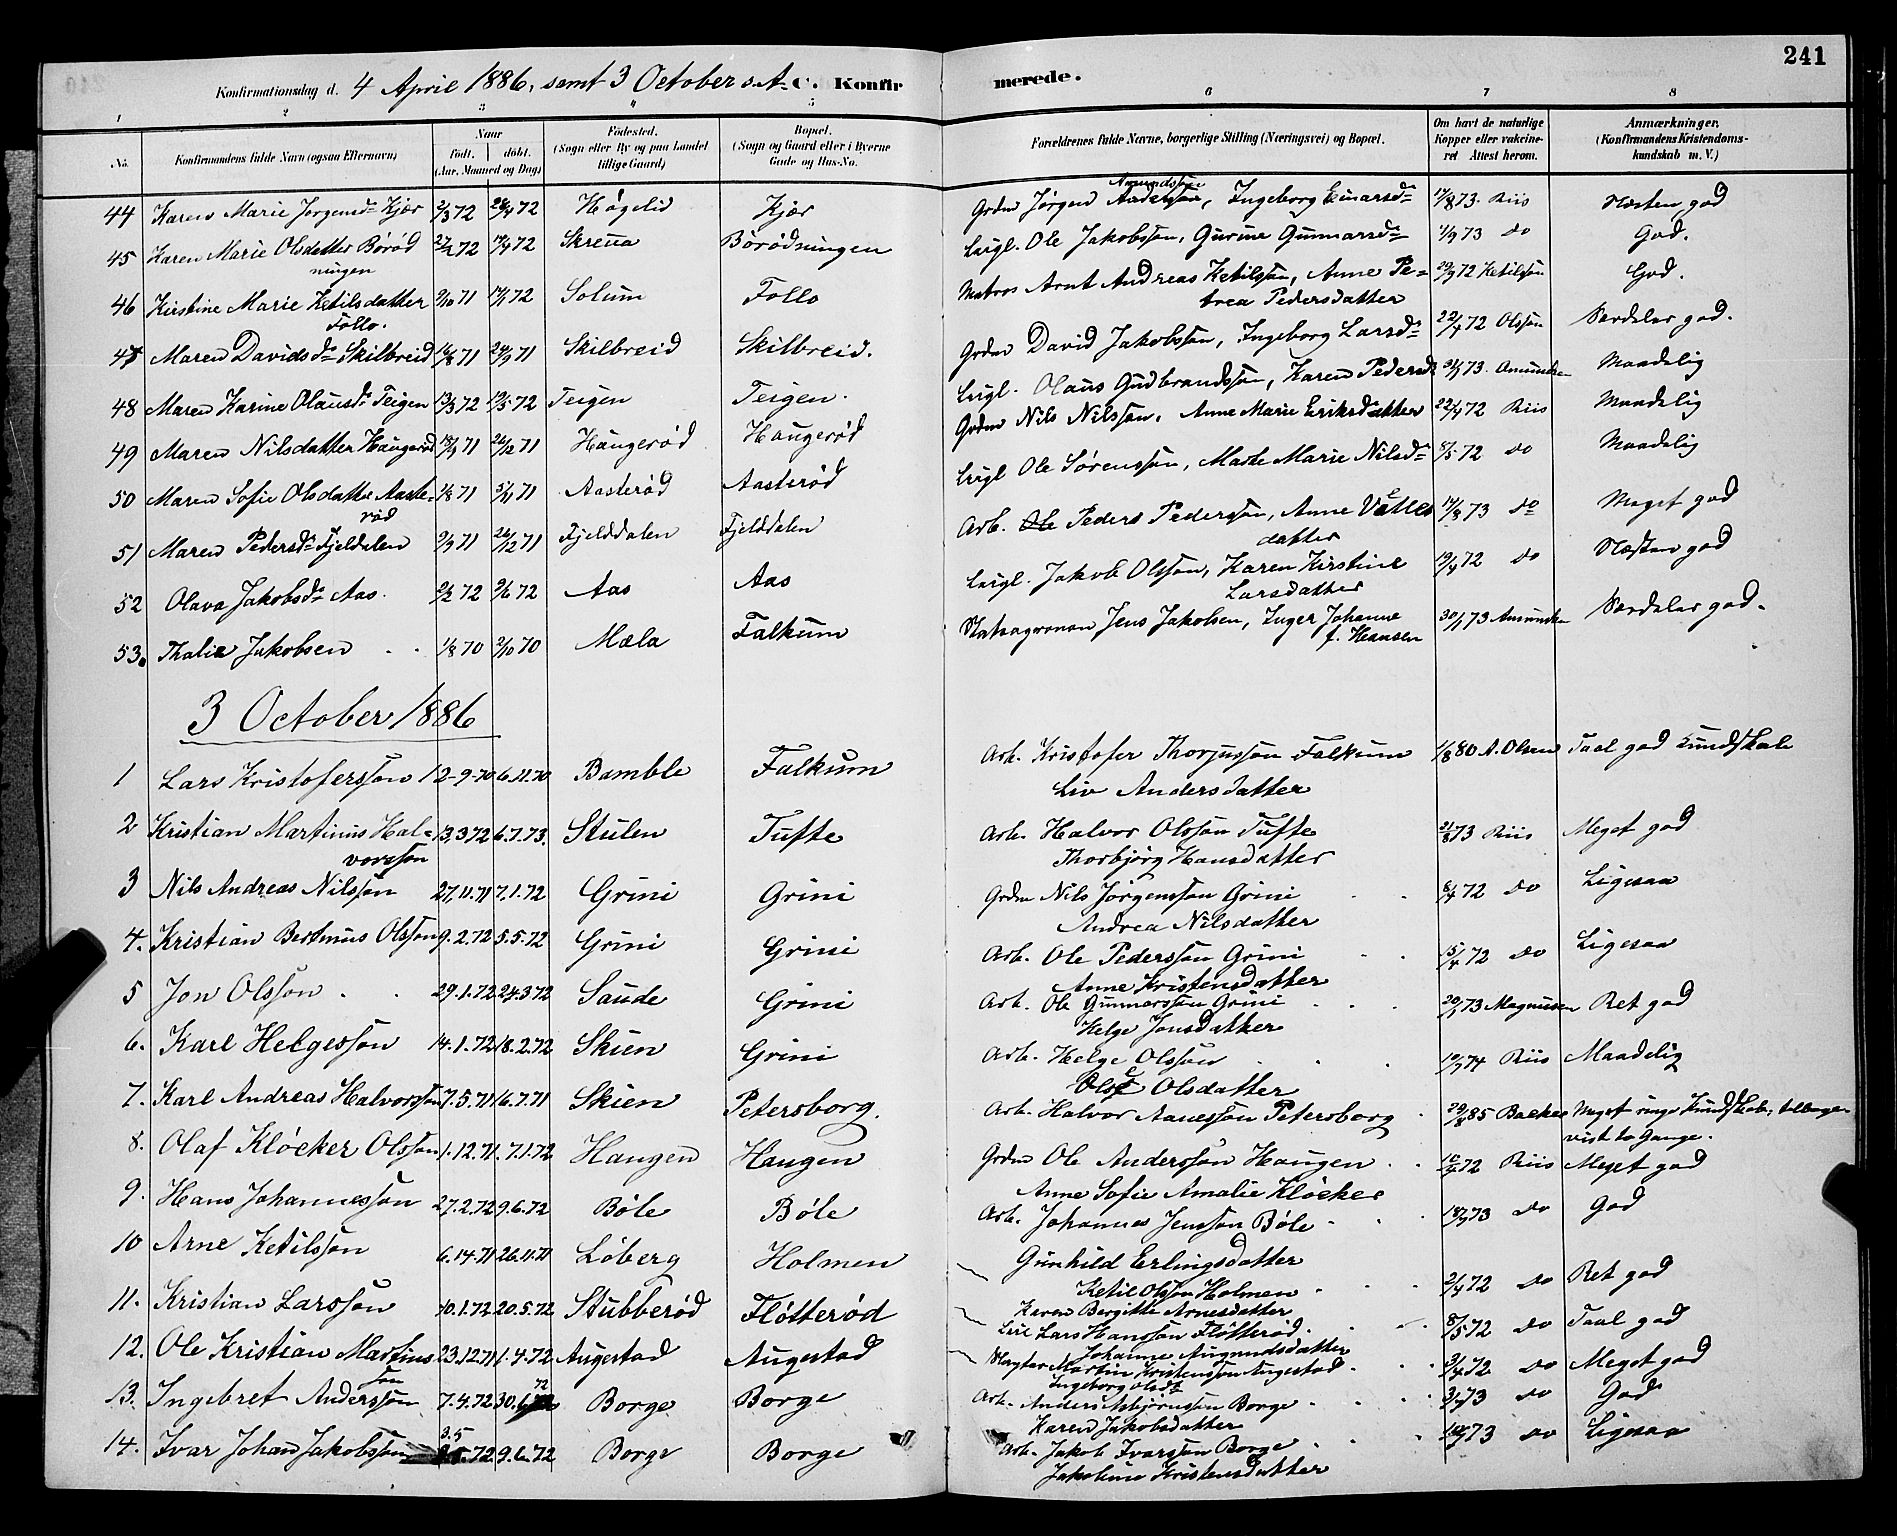 241
Konfirmationsdag d. 4 April 1886, samt 3 October s. A. C. Konfirmerede.
1 2 3 4 5 6 7 8
No. Konfirmandens fulde Navn (ogsaa Efternavn) Naar født. døbt. (Aar, Maaned og Dag) Fødested. (Sogn eller By og paa Landet tillige Gaard) Bopæl. (Sogn og Gaard eller i Byerne Gade og Hus-No.) Forældrenes fulde Navne, borgerlige Stilling (Næringsvei) og Bopæl. Om havt de naturlige Kopper eller vakcineret Attest herom. Anmærkninger. (Konfirmandens Kristendomskundskab m. V.)
44 Karen Marie Jørgensd. Kjær 2/3 72 28/4 72 Høgelid Kjær Grdm Jørgen Amundssøn, Ingeborg Einarsd. 17/8 73. Riis Næsten god
45 Karen Marie Olsdatter Børød 27/2 72 14/4 72 Skreua Børødningen Leigl. Ole Jakobssøn, Gurine Gunnarsd. 1/9 73 do God.
ningen
46 Kirstine Marie Ketilsdatter 9/10 71 14/1 72 Solum Follo Matros Arnt Andreas Ketilssøn, Anne Pe- 29/9 72 Ketilssøn God.
Follo. trea Pedersdatter
47 Maren Davidsd. Skilbreid 16/8 71 24/9 71 Skilbreid Skilbreid. Grdm David Jakobssøn, Ingeborg Larsd. 22/4 72 Olssøn Særdeles god.
48 Maren Karine Olausd. Teigen 13/3 72 19/5 72 Teigen Teigen. Leigl. Olaus Gudbrandssøn, Karen Pedersd. 31/1 73. Amundsen Maadelig
49 Maren Nilsdatter Haugerød 18/9 71 26/12 71 Haugerød Haugerød Grdm Nils Nilssøn, Anne Marie Eriksdatter 22/4 72 Riis Maadelig
50 Maren Sofie Olsdatter Aaste- 1/8 71 5/11 71 Aasterød Aasterød Leigl Ole Sørenssøn, Marte Marie Nilsd. 8/5 72 do Maadelig
rød
51 Maren Pedersd. Fjeldalen 9/9 71 26/12 71 Fjelddalen Fjelddalen Arb. Peders Pederssøn, Anne Vetles 14/8 73 do Meget god
datter
52 Olava Jakobsd. Aas. 2/2 72 9/6 72 Aas Aas Leigl. Jakob Olssøn, Karen Kirstine 19/4 72 do Næsten god
Larsdatter
53. Thalie Jakobsen 1/8 70 2/10 70 Mæla Falkum Statsagronon Jens Jakobsen, Inger Johanne 30/1 73 Amundsen Særdeles god.
f. Hansen
3 October 1886
1 Lars Kristoferssøn 12-9-70 6.11.70 Bamble Falkum Arb. Kristofer Thorjussøn Falkum 1/8 80 A. Olsen Taal god Kundskab
Liv Andersdatter
2 Kristian Martinus Hal- 13.3 72 6.7.73. Stulen Tufte Arb. Halvor Olssøn Tufte 21/8 73 Riis Meget god
vorssøn Thorbjørg Hansdatter
3 Nils Andreas Nilssøn 27.11.71 7.1.72 Grini Grini Grdm Nils Jørgenssøn Grini 6/4 72 do Ligesaa
Andrea Nilsdatter
4. Kristian Bertinus Olssøn 9.2.72 5.5.72 Grini Grini Arb. Ole Pederssøn Grini 15/4 72 do Ligesaa
Anne Kristensdatter
5 Jon Olssøn 29.1.72 24.3 72 Saude Grini Arb. Ole Gunnarssøn Grini 20/1 73 Magnusen Ret god
Helge Jonsdatter
6. Karl Helgessøn 14.1.72 18.2.72 Skien Grini Arb. Helge Olssøn 19/7 74 Riis Maadelig
Olsdatter
7. Karl Andreas Halvorssøn 7.5.71 16.7.71 Skien Petersborg. Arb. Halvor Aanessøn Petersborg 29/8 85 Backer Meget ringe Kundskab, tilbage-
vist to Gange.
8. Olaf Kløcker Olssøn 1.12.71 7.1.72 Haugen Haugen Grdm Ole Anderssøn Haugen 18/4 72 Riis Meget god
Anne Sofie Amalie Kløcker
9. Hans Johannessøn 27.2.72 9.6.72 Bøle Bøle Arb. Johannes Jenssøn Bøle 18/7 73 do God
Gunhild Erlingsdatter
10 Arne Ketilssøn 6.14.71 26.11.71 Løberg Holmen Ketil Olssøn Holmen 2/4 72 do Ret god
Karen Birgitte Arnesdatter
11. Kristian Larssøn 10.1.72 20.5.72 Stubberød Fløtterød Leil Lars Hanssøn Fløtterød. 8/5 72 do Taal god
Johanne Augundsdatter
12. Ole Kristian Martins 23.12.71 1.4.72 Augestad Augestad Slagter Martin Kristenssøn Augestad 3/4 72 do Meget god
søn Ingeborg Olsdt
13. Ingebret Anderssøn 7.4.72 30.6.72 Borge Borge Arb. Anders Asbjørnssøn Borge 3/7 73 do God
Karen Jakobsdatter
14. Ivar Johan Jakobssøn 3.5.72 9.6.72 Borge Borge Arb. Jakob Ivarssøn Borge 14/7 73 do Ligesaa
Jakobine Kristensdatter